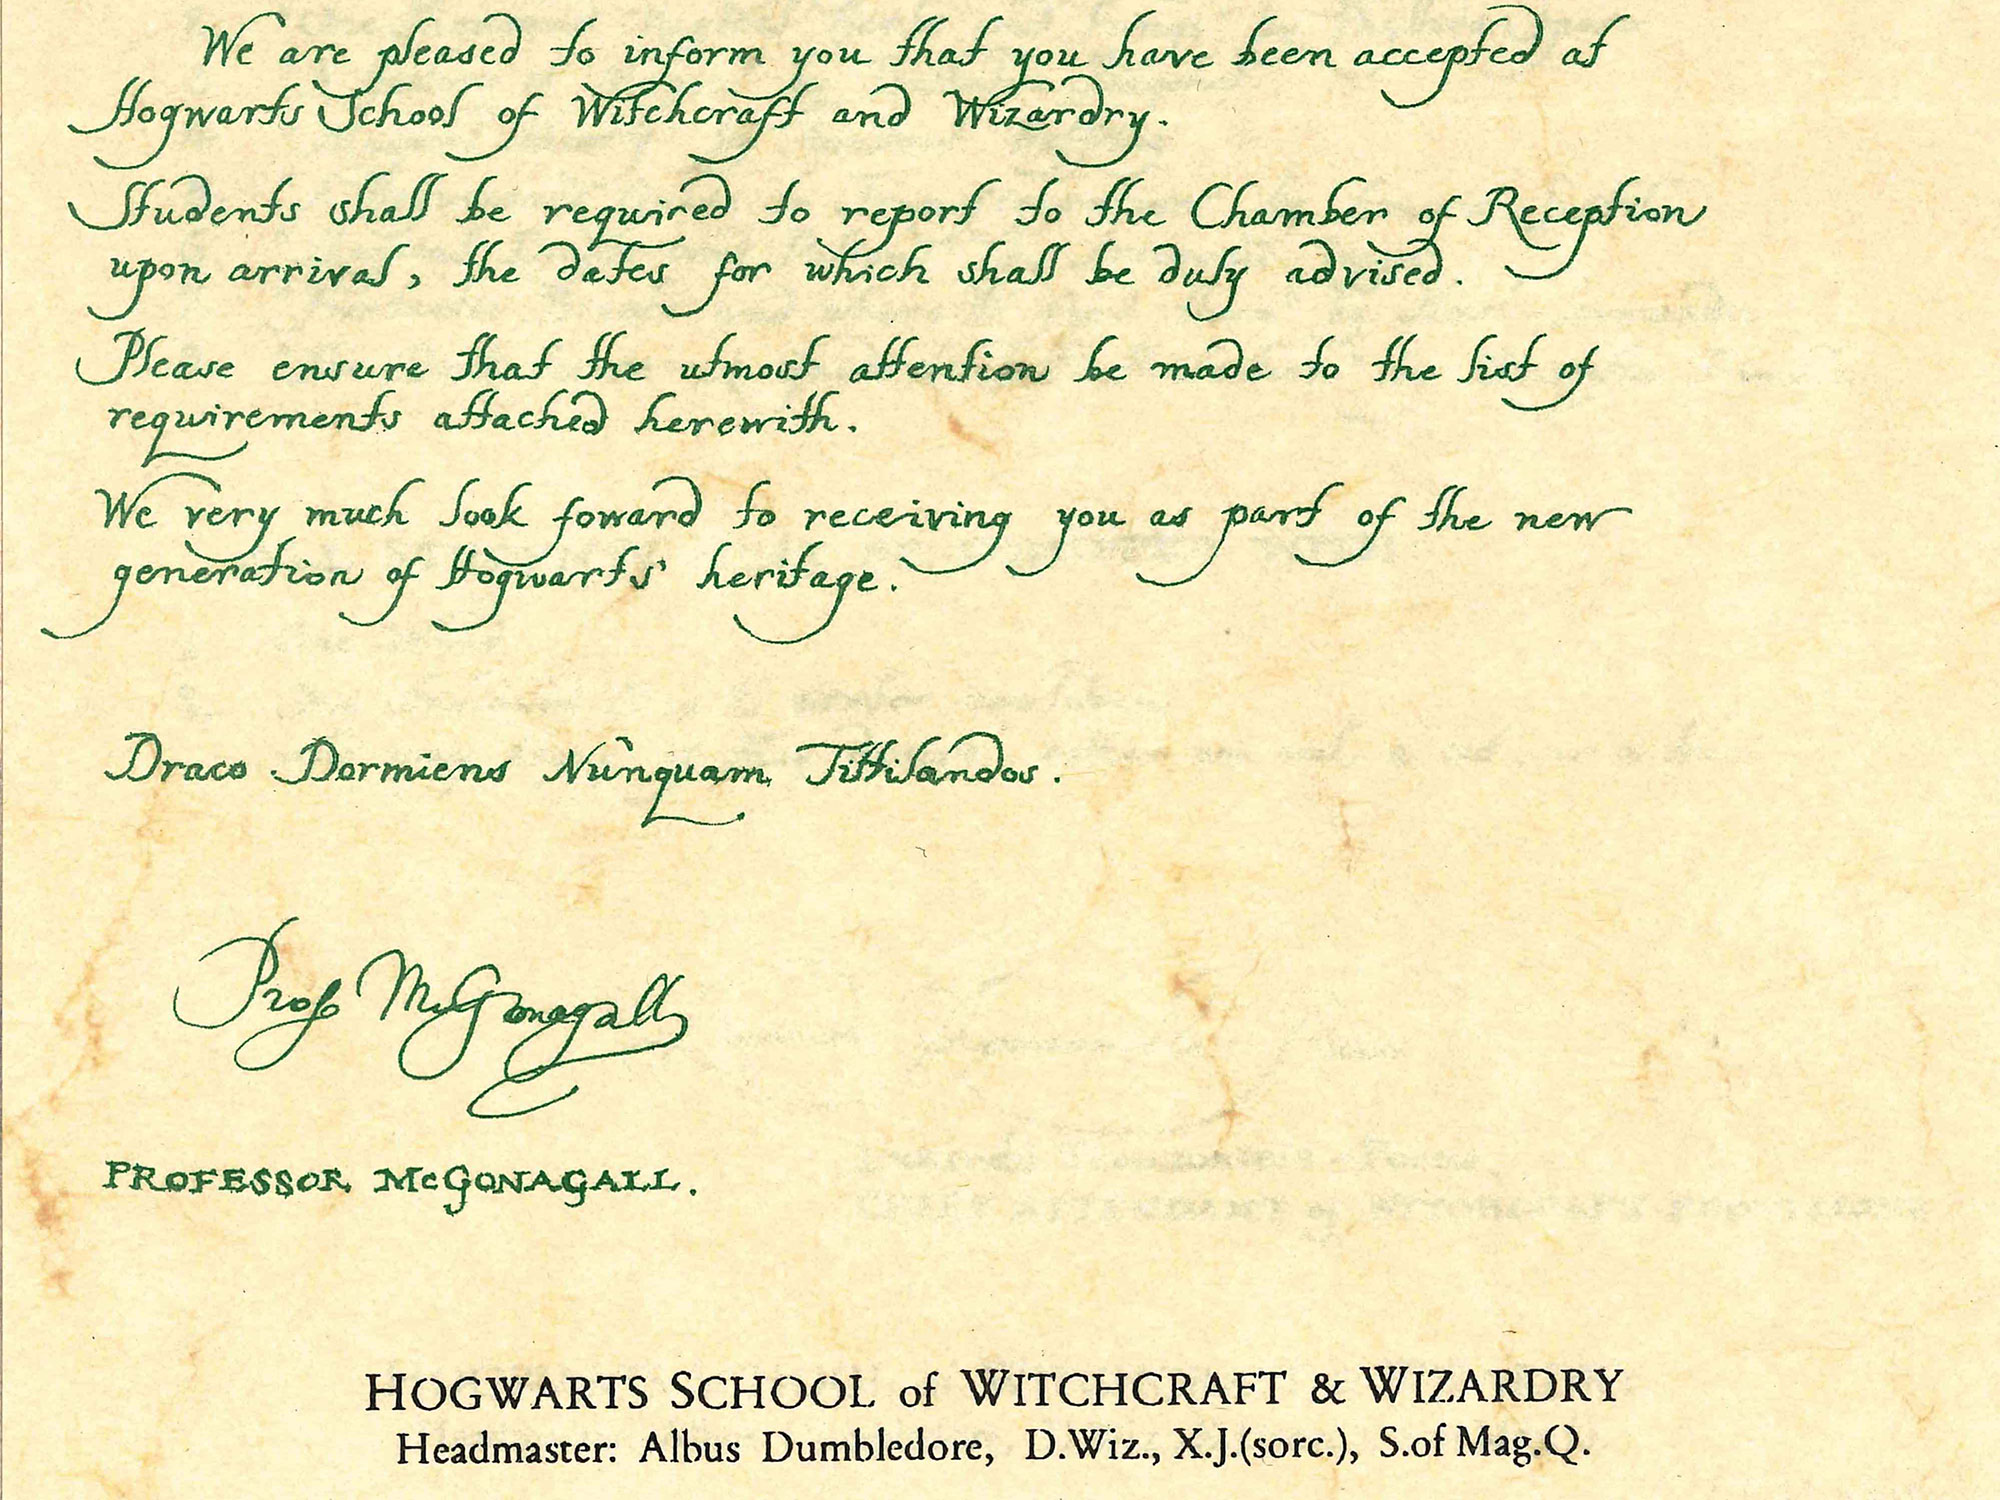 We are pleased to inform you that you have been accepted at
Hogwarts School of Witchcraft and Wizardry.
Students shall be required to report to the Chamber of Reception
upon arrival, the dates for which shall be duly advised.
Please ensure that the utmost attention be made to the list of
requirements attached herewith.
We very much look foward to receiving you as part of the new
generation of Hogwarts' heritage.
Draco Dormiens Nunquam Tittilandos.
Prof. McGonagall
PROFESSOR McGONAGALL.
HOGWARTS SCHOOL of WITCHCRAFT & WIZARDRY
Headmaster: Albus Dumbledore, D.Wiz., X.J.(sorc.), S.of Mag.Q.